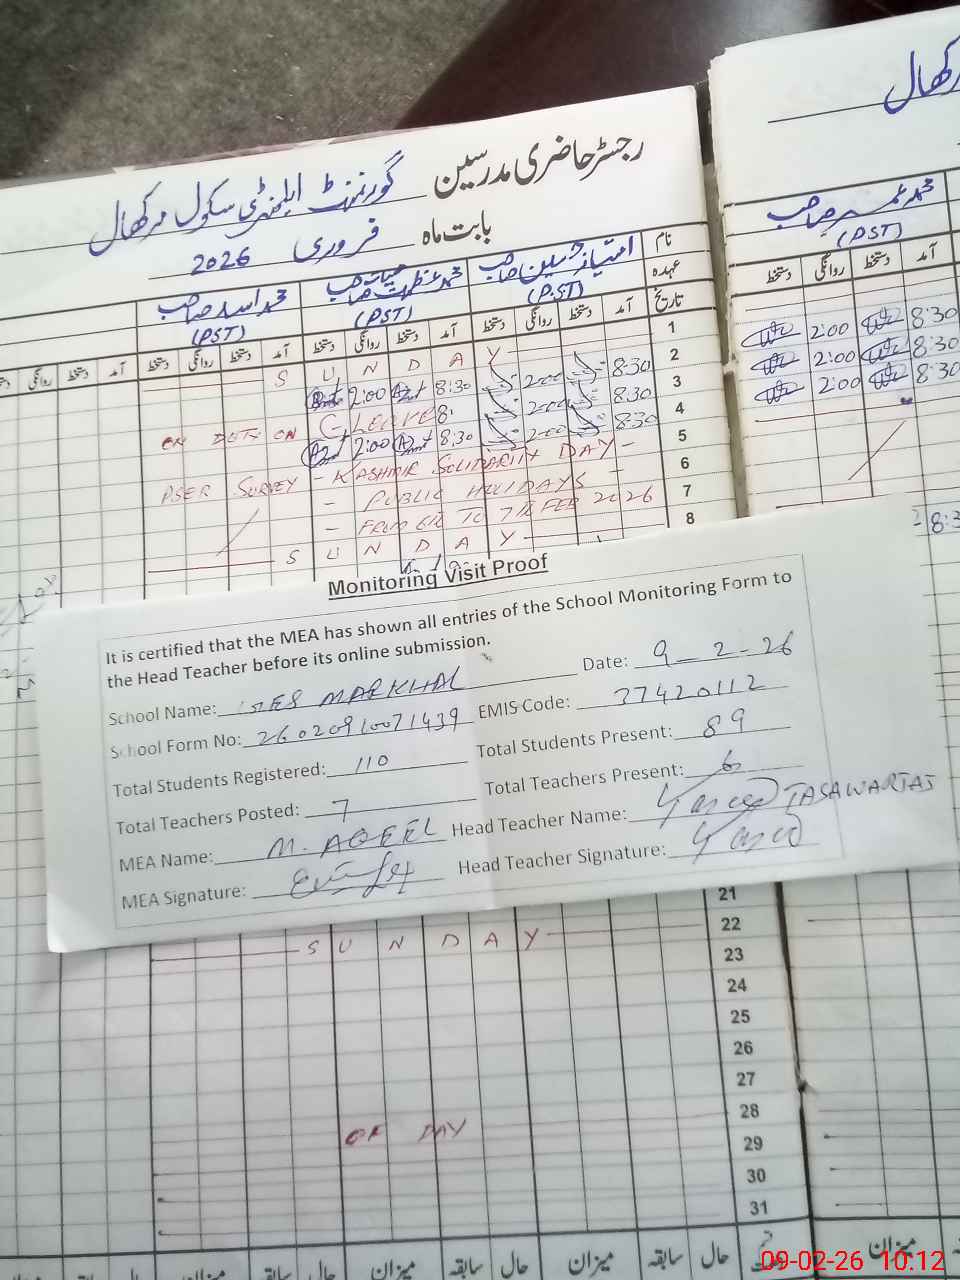 رجسٹر حاضری مدرسین گورنمنٹ ایلیمنٹری سکول مرکھال
بابت ماہ فروری 2026
نام امتیاز حسین صاحب محمد عظمت حیات صاحب محمد اسد صاحب
عہدہ (PST) (PST) (PST)
تاریخ آمد دستخط روانگی دستخط آمد دستخط روانگی دستخط آمد دستخط روانگی دستخط آمد دستخط روانگی دستخط
1 S U N D A Y
2 8:30 2:00 8:30 2:00
3 8:30 2:00 C, LEAVE ON DUTY ON
4 8:30 2:00 8:30 2:00
5 - KASHMIR SOLIDARITY DAY - PSER SURVEY
6 - PUBLIC HOLIDAYS -
7 - FROM 6th TO 7th FEB 2026
8 S U N D A Y
مرکھال
محمد عمیر صاحب
(PST)
آمد دستخط روانگی دستخط
8:30 2:00
8:30 2:00
8:30 2:00
8:3
Monitoring Visit Proof
It is certified that the MEA has shown all entries of the School Monitoring Form to
the Head Teacher before its online submission.
School Name: GES MARKHAL Date: 9-2-26
School Form No: 26020910071439 EMIS Code: 37420112
Total Students Registered: 110 Total Students Present: 89
Total Teachers Posted: 7 Total Teachers Present: 6
MEA Name: M. AQEEL Head Teacher Name: TASAWAR TAJ
MEA Signature: Head Teacher Signature:
21
22 S U N D A Y
23
24
25
26
27
28
29 OF DAY
30
31
حال سابقہ میزان حال سابقہ میزان حال سابقہ میزان
میزان
09-02-26 10:12